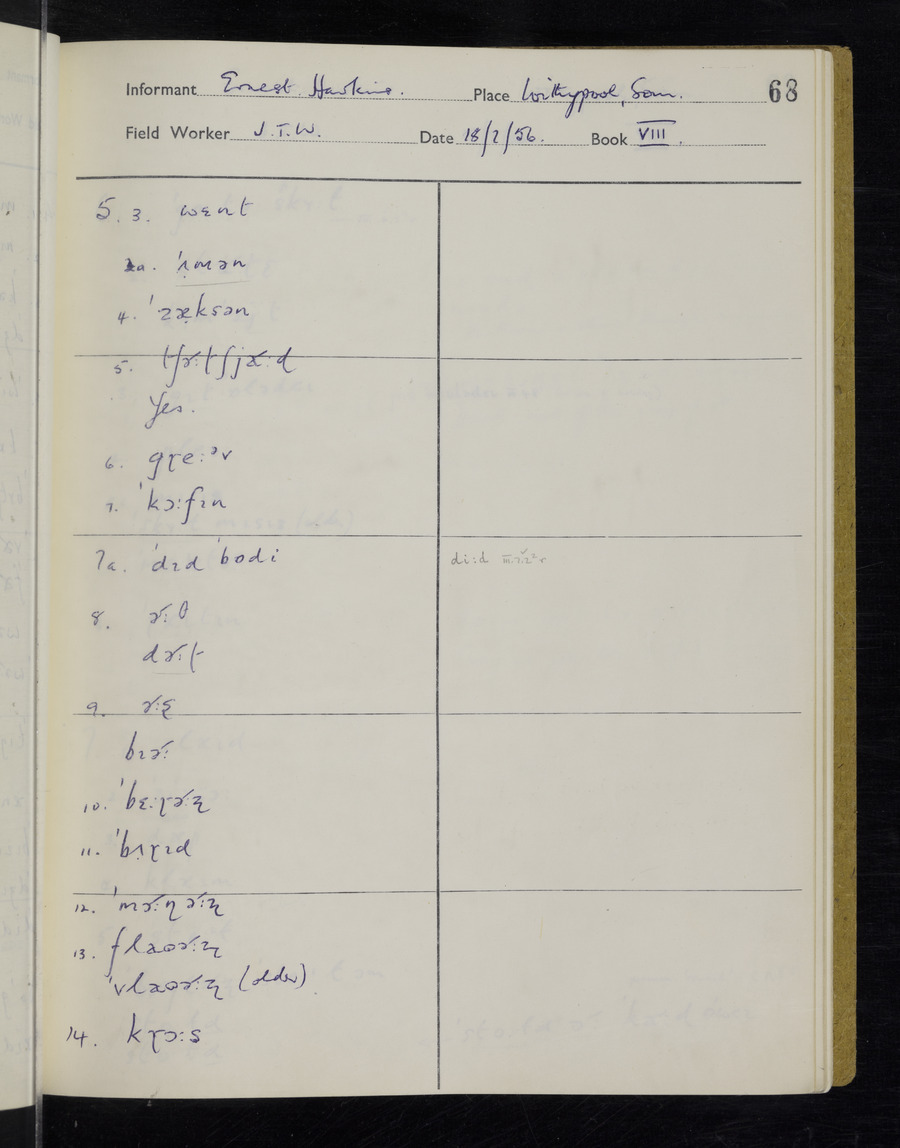 Informant Ernest Hawkins. Place Withypool, Som. 68
Field Worker J.T.W. Date 18/7/56. Book VIII.
5. 3. wɛnt
3a. ˈn̩mən
4. ˈzæ̣ksən
5. tʃɚ:tʃjɚ:d
Yes.
6. gɽe:ᵊv
7. ˈkɔ:fɪn
7a. ˈdɪd ˈbɒdi di:d
8. ɚ:θ
dɚ:t
9. ɚ:ʂ
bɪɚ:
10. ˈbɛ:ɽɚ:ʐ
11. ˈbʌ̣ɽɪd
12. ˈmɚ:ɳɚ:ʐ
13. flaʊɚ:ʐ
ˈvlaʊɚ:ʐ (older)
14. kɽɔ:s